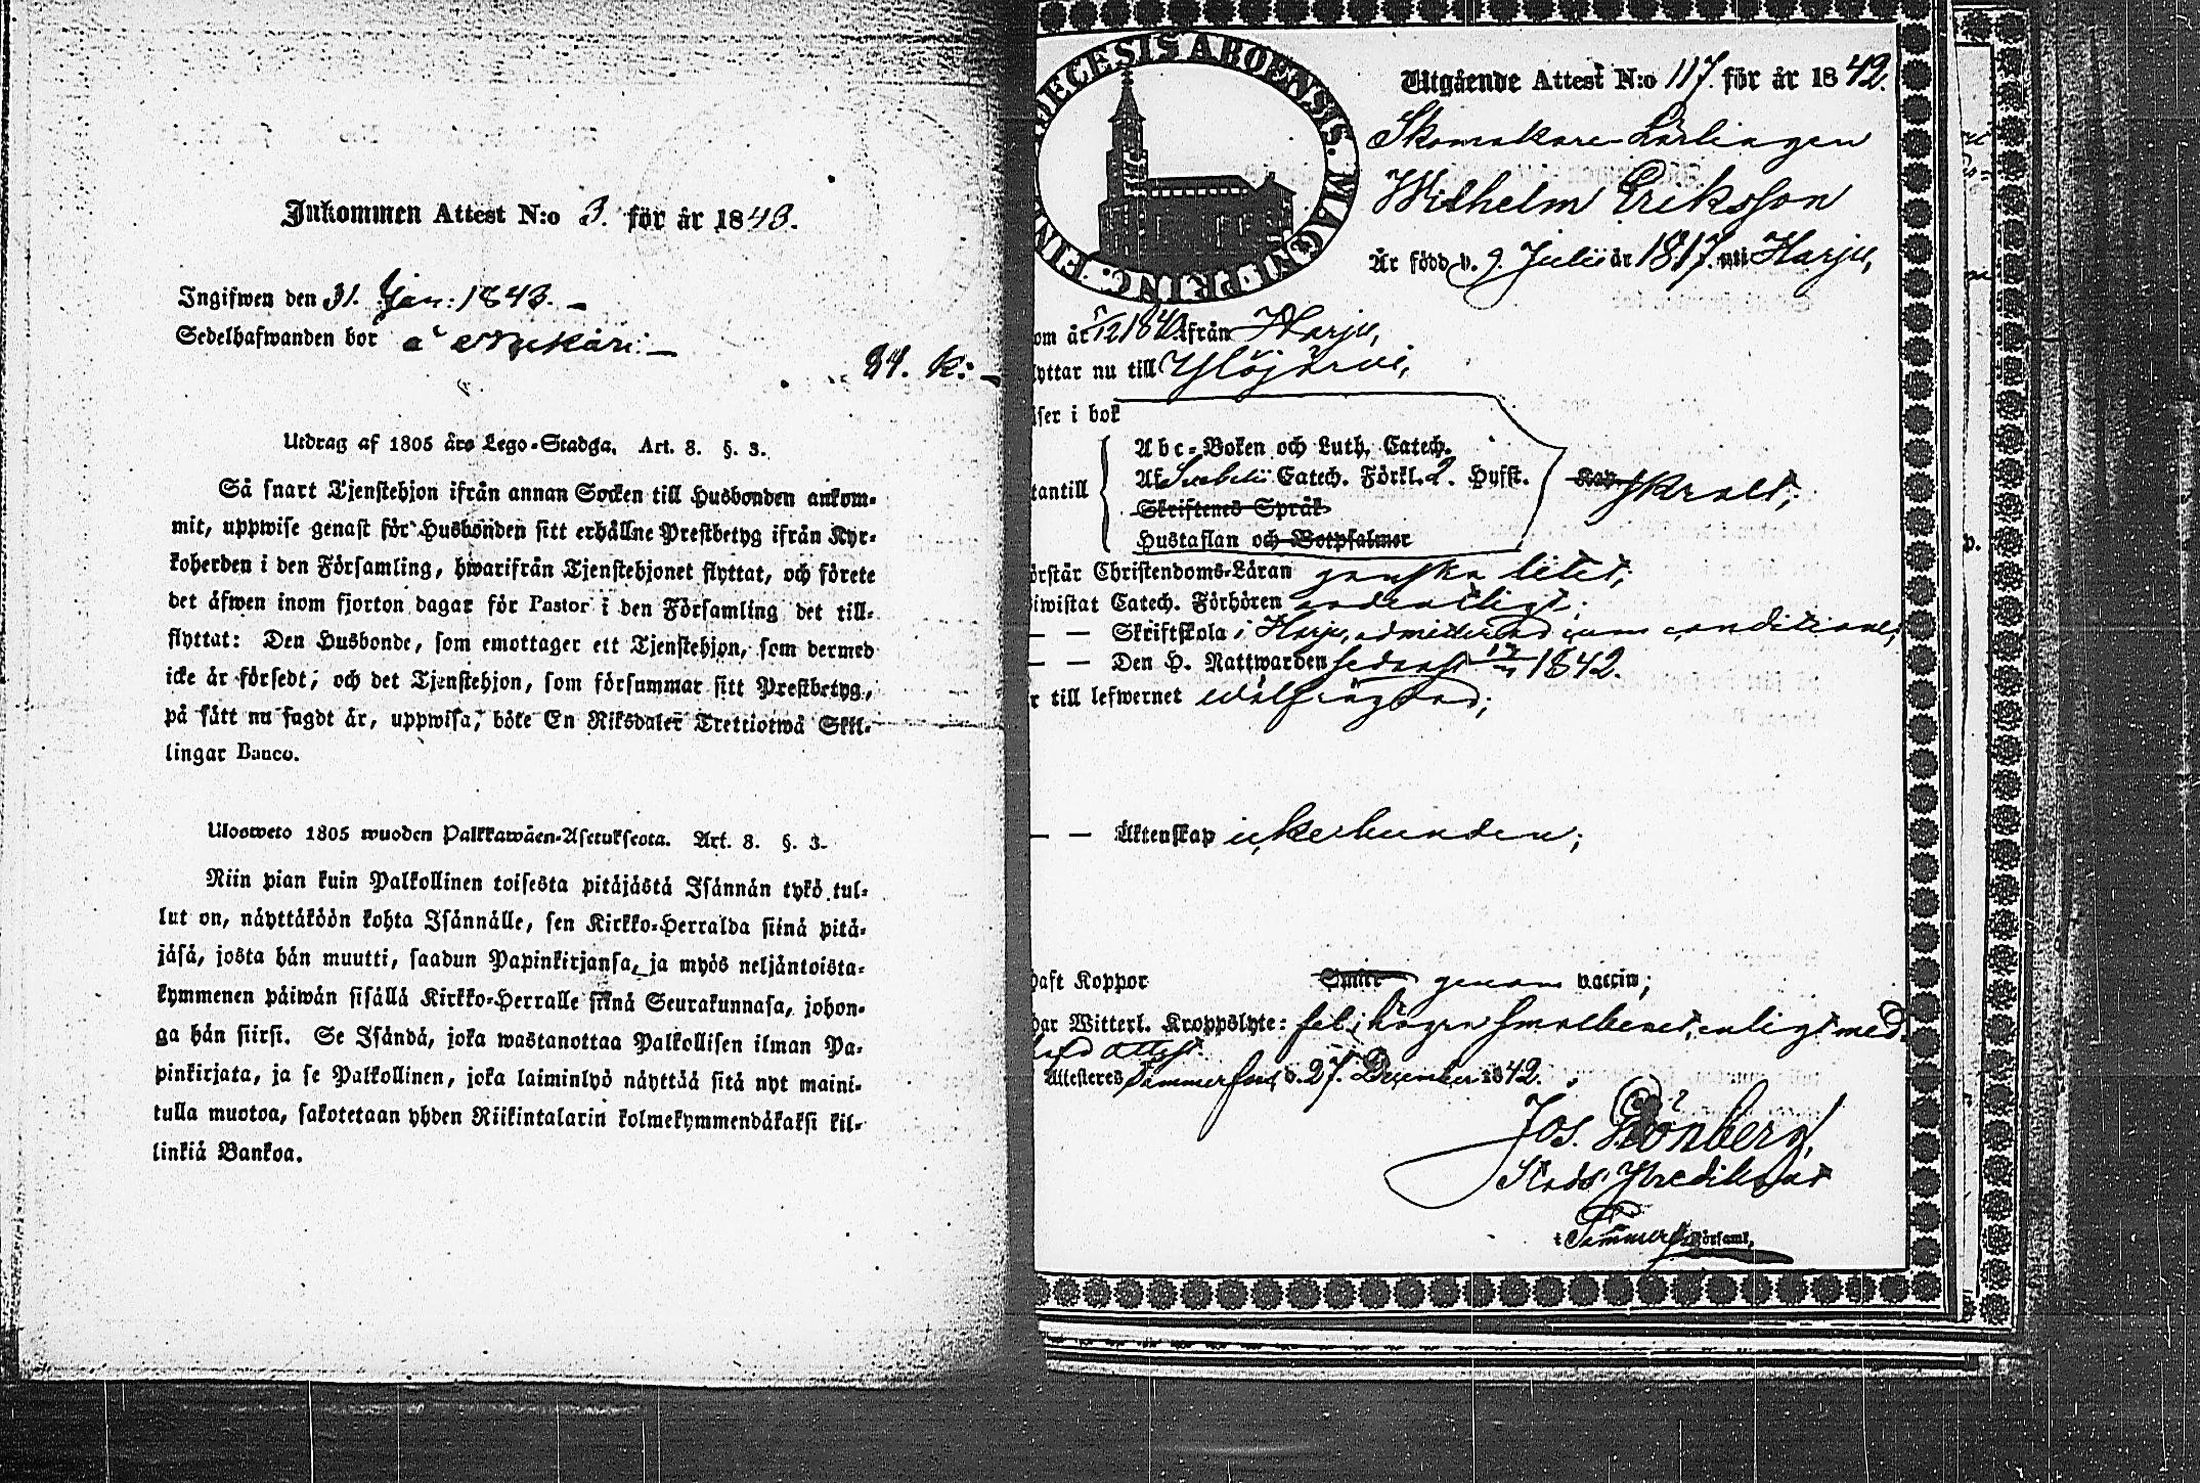 Inkommen Attest N:o 3. för år 1843.
Ingifwen den 31. Jan: 1843. –
Sedelhafwanden bor å
84. K: –
Utdrag af 1805 års Lego-Stadga. Art. 8. §. 3.
Så snart Tjenstehjon ifrån annan Socken till Husbonden ankom-
mit, uppwise genast för Husbonden sitt erhållne Prestbetyg ifrån Kyr-
koherden i den Församling, hwarifrån Tjenstehjonet flyttat, och förete
det äfwen inom fjorton dagar för Pastor i den Församling det till-
flyttat: Den Husbonde, som emottager ett Tjenstehjon, som dermed
icke är försedt, och det Tjenstehjon, som försummar sitt Prestbetyg,
på sätt nu sagdt är, uppwisa, böte En Riksdaler Trettiotwå Skil-
lingar Banco.
Uloswето 1805 wuoden Palkkawäen-Asetuksesta. Art. 8. §. 3.
Niin pian kuin Palkollinen toisesta pitäjästä Isännän tykö tul-
lut on, näyttäköön kohta Isännälle, sen Kirkko-Herralda siinä pitä-
jäsä, josta hän muutti, saadun Papinkirjansa, ja myös neljäntoista-
kymmenen päiwän sisällä Kirkko-Herralle siinä Seurakunnasa, johon-
ga hän siirsi. Se Isändä, joka wastanottaa Palkollisen ilman Pa-
pinkirjata, ja se Palkollinen, joka laiminlyö näyttää sitä nyt maini-
tulla muotoa, sakotetaan yhden Riikintalarin kolmekymmendäkaksi kil-
linkiä Bankoa.
DECESIS ABOENSIS. MAGNI PRINC. FIN
Utgående Attest N:o 117. för år 1842.
Skomakare-Lärlingen
Wilhelm Eriksson
Är född d. 9 Julii år 1817. uti Harju,
om år 1840 ifrån Harju,
lyttar nu till Ylöjärvi,
ser i bok
Abc-Boken och Luth. Catech.
Af Svebelii Catech. Förkl. 2. Hufst.
Skriftenes Språk
Hustaflan och Botpsalmer
tantill
svalt;
örstår Christendoms-Läran ganska litet;
iwistat Catech. Förhören ordentligt;
– – Skriftskola i Harju, admitterad cum conditione;
– – Den H. Nattwarden sedanst 1842.
r till lefwernet wälfrägdad;
– – Äktenskap icke bunden;
haft Koppor Smitt genom vaccin;
har Witterl. Kroppslyte: fel i högra smalbenet, enligt med.
attest.
Attesteres Tammerfors d. 27. December 1842.
Jos. Grönberg,
Stads Predikant
i Tammerf. Församl.